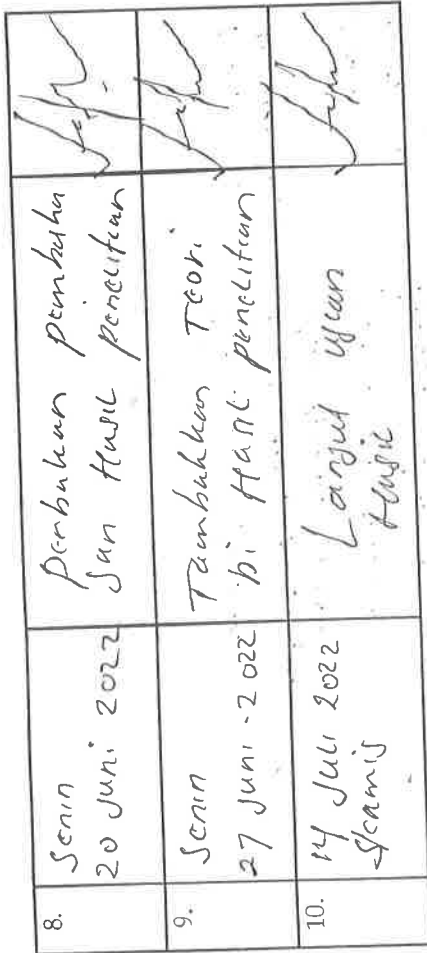 8.
Senin
20 Juni 2022
Perbaikan pembaha
san Hasil penelitian
9.
Senin
27 Juni - 2022
Tambahkan Teori
Di Hasil penelitian
10.
14 Juli 2022
Kamis
Lanjut ujian
Hasil